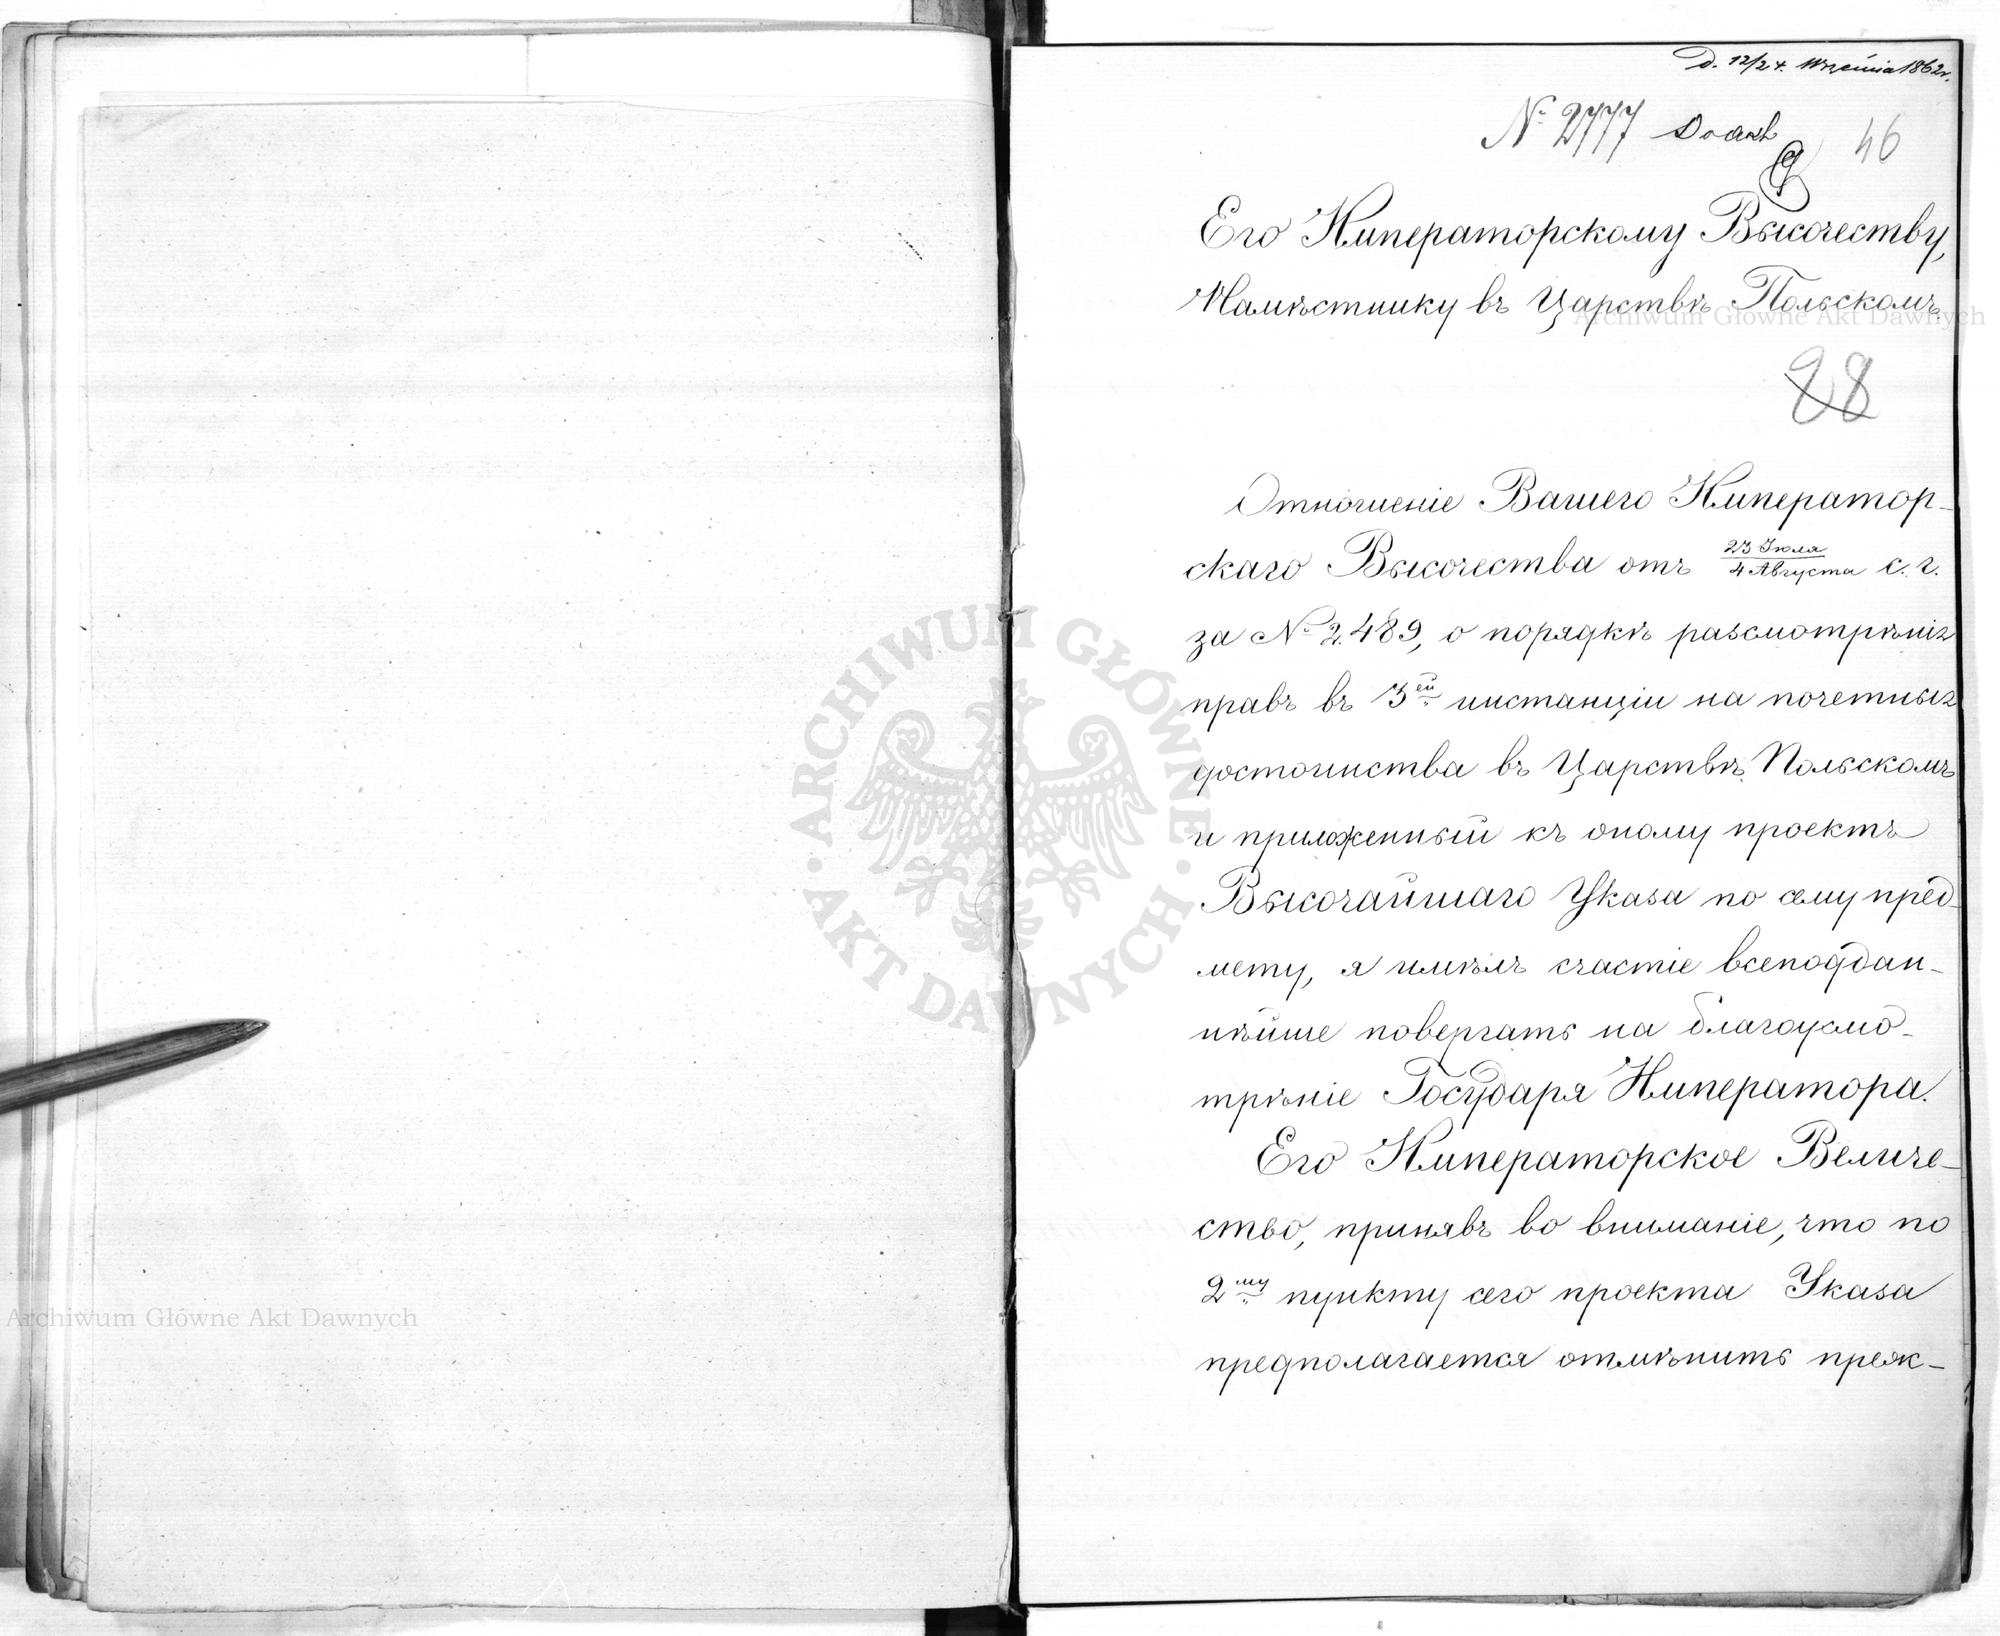 D. 12/24. Września 1862 r.
№ 2777
46
Его Императорскому Высочеству,
Намѣстнику въ Царствѣ Польскомъ.
28
Отношеніе Вашего Император-
скаго Высочества отъ 23 Іюля / 4 Августа с. г.
за № 2.489, о порядкѣ разсмотрѣнія
правъ въ 3ей инстанціи на почетныя
достоинства въ Царствѣ Польскомъ
и приложенный къ оному проектъ
Высочайшаго Указа по сему пред-
мету, я имѣлъ счастіе всеподдан-
нѣйше повергать на благоусмо-
трѣніе Государя Императора.
Его Императорское Величе-
ство, принявъ во вниманіе, что по
2му пункту сего проекта Указа
предполагается отмѣнить преж-
Archiwum Główne Akt Dawnych
Archiwum Główne Akt Dawnych
ARCHIWUM GŁÓWNE · AKT DAWNYCH ·